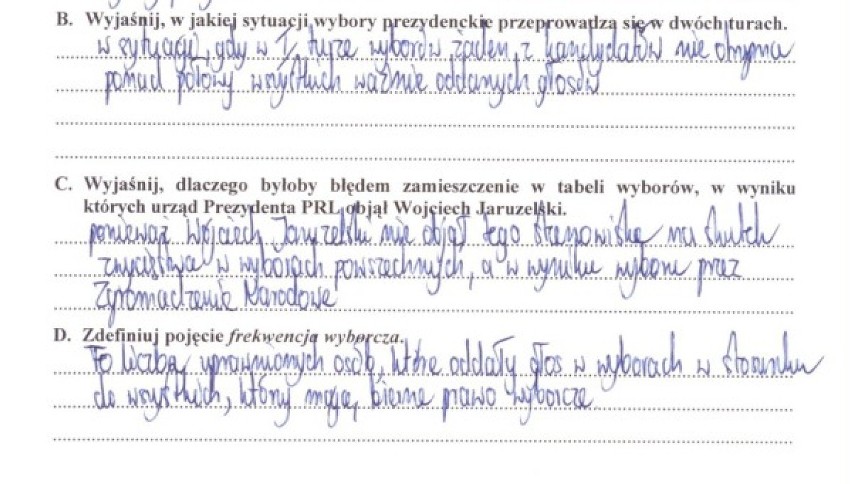 B. Wyjaśnij, w jakiej sytuacji wybory prezydenckie przeprowadza się w dwóch turach.
w sytuacji, gdy w I turze wyborów żaden z kandydatów nie otrzyma
ponad połowy wszystkich ważnie oddanych głosów
C. Wyjaśnij, dlaczego byłoby błędem zamieszczenie w tabeli wyborów, w wyniku
których urząd Prezydenta PRL objął Wojciech Jaruzelski.
ponieważ Wojciech Jaruzelski nie objął tego stanowiska na skutek
zwycięstwa w wyborach powszechnych, a w wyniku wyboru przez
Zgromadzenie Narodowe
D. Zdefiniuj pojęcie frekwencja wyborcza.
To liczba uprawnionych osób, które oddały głos w wyborach w stosunku
do wszystkich, którzy mają bierne prawo wyborcze